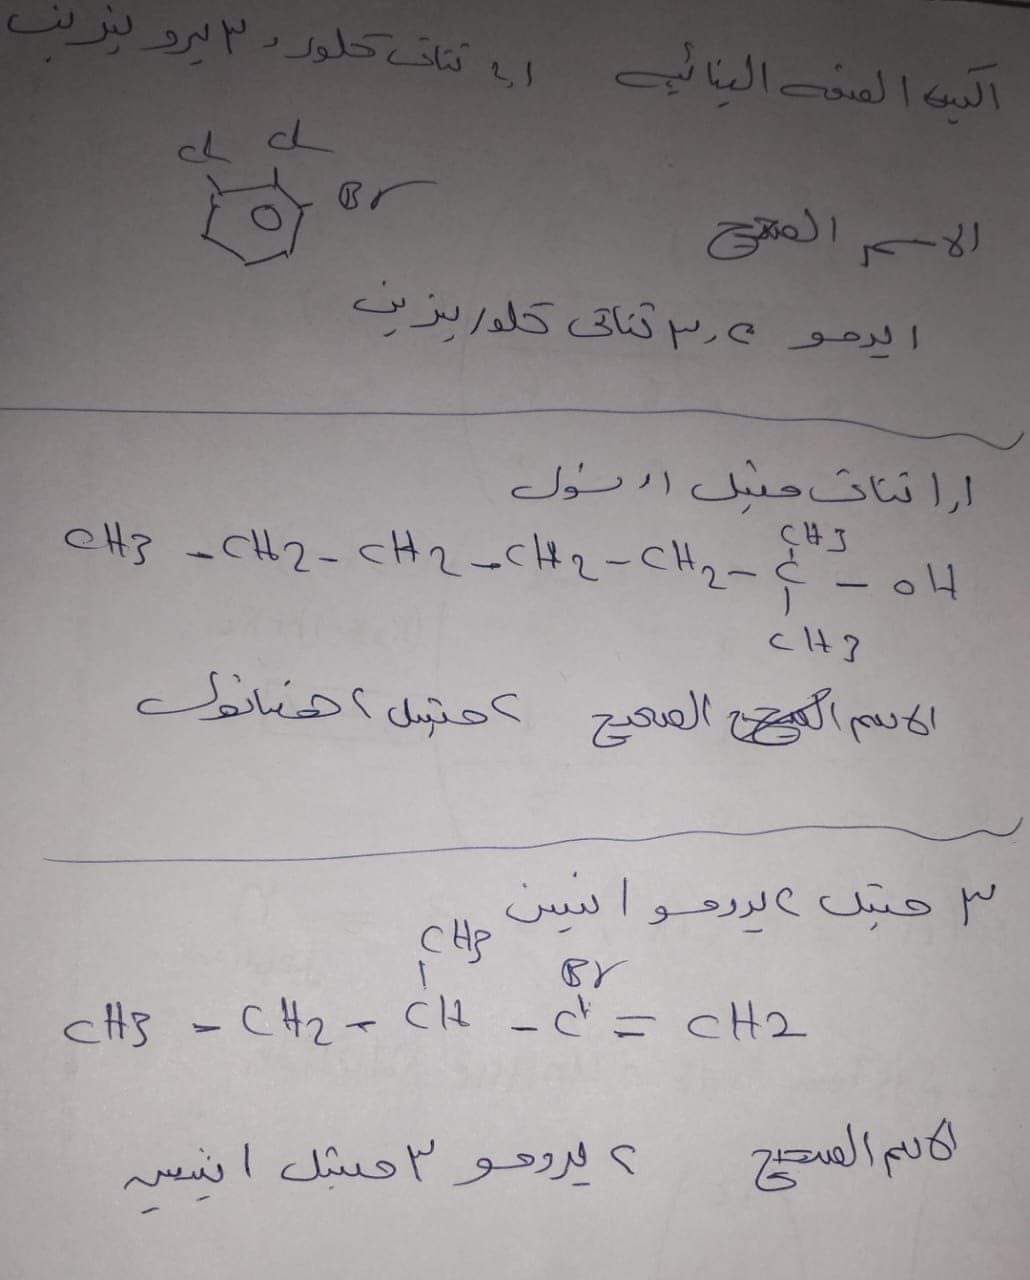 اكتب الصيغه البنائيه ١،٢ ثنائى كلور، ٣ برو بنزين
Cl Cl
Br
الاسم الصحيح
١ برمو ٢،٣ ثنائى كلور بنزين
١،١ ثنائى ميثيل ١
CH3
CH3 - CH2 - CH2 - CH2 - CH2 - C - OH
CH3
الاسم الصحيح ٢ ميثيل ٢ هبتانول
٣ ميثيل ٢ برومو ١
CH3
Br
CH3 - CH2 - CH - C = CH2
الاسم الصحيح ٢ برومو ٣ ميثيل ١